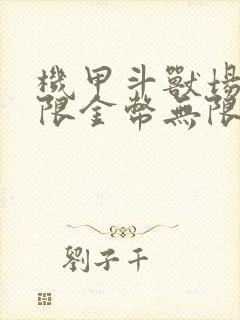 機甲斗獸場
限金幣無限
劉子千